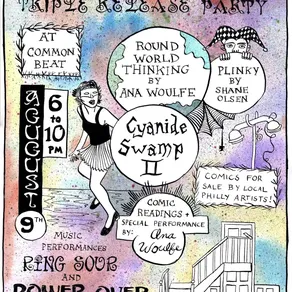 TRIPLE RELEASE PARTY
AT
COMMON
BEAT
ROUND
WORLD
THINKING
BY
ANA WOULFE
PLINKY
BY
SHANE
OLSEN
AUGUST
9TH
6
TO
10
PM
Cyanide
Swamp
II
COMICS FOR
SALE BY LOCAL
PHILLY ARTISTS!
COMIC
READINGS +
SPECIAL PERFORMANCE
BY: Ana
Woulfe
MUSIC
PERFORMANCES
RING SOUR
AND
POWER OVER